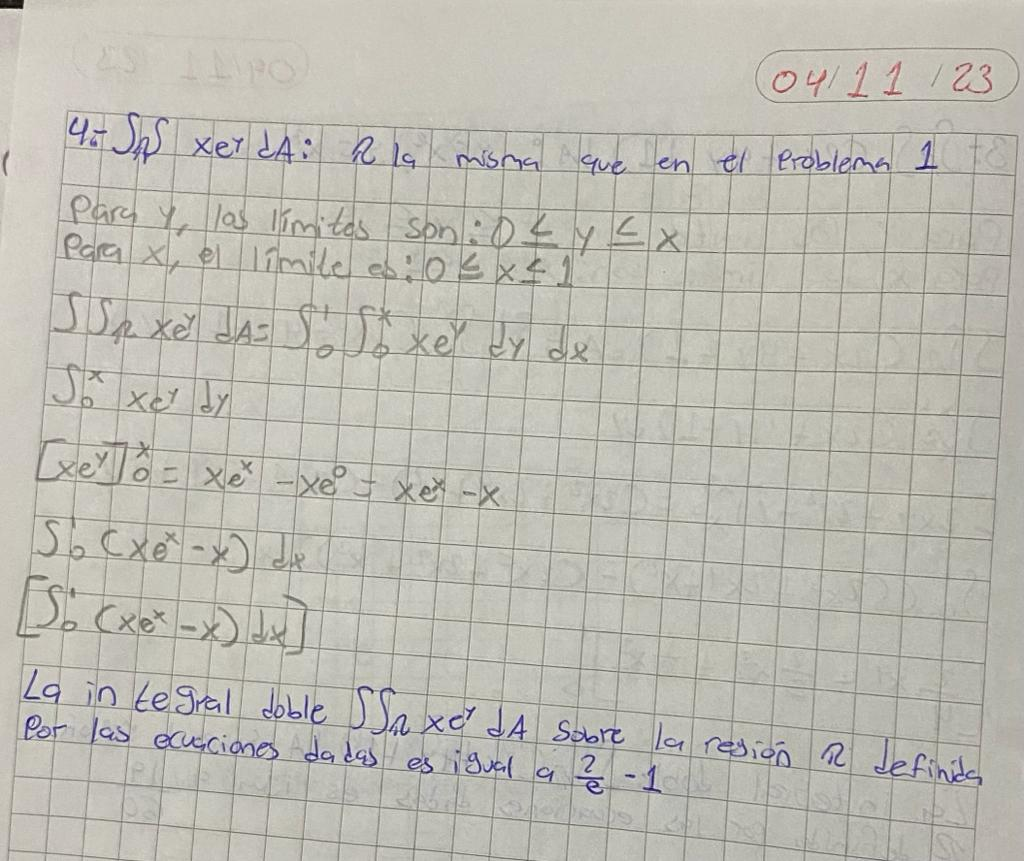 04/11/23
4.- ∫∫R xe^y dA: R la misma que en el problema 1
Para y, los límites son: 0 ≤ y ≤ x
Para x, el límite es: 0 ≤ x ≤ 1
∫∫R xe^y dA = ∫₀¹ ∫₀ˣ xe^y dy dx
∫₀ˣ xe^y dy
[xe^y]₀ˣ = xe^x - xe^0 = xe^x - x
∫₀¹ (xe^x - x) dx
[∫₀¹ (xe^x - x) dx]
La integral doble ∫∫R xe^y dA sobre la región R definida
Por las ecuaciones dadas es igual a 2/e - 1